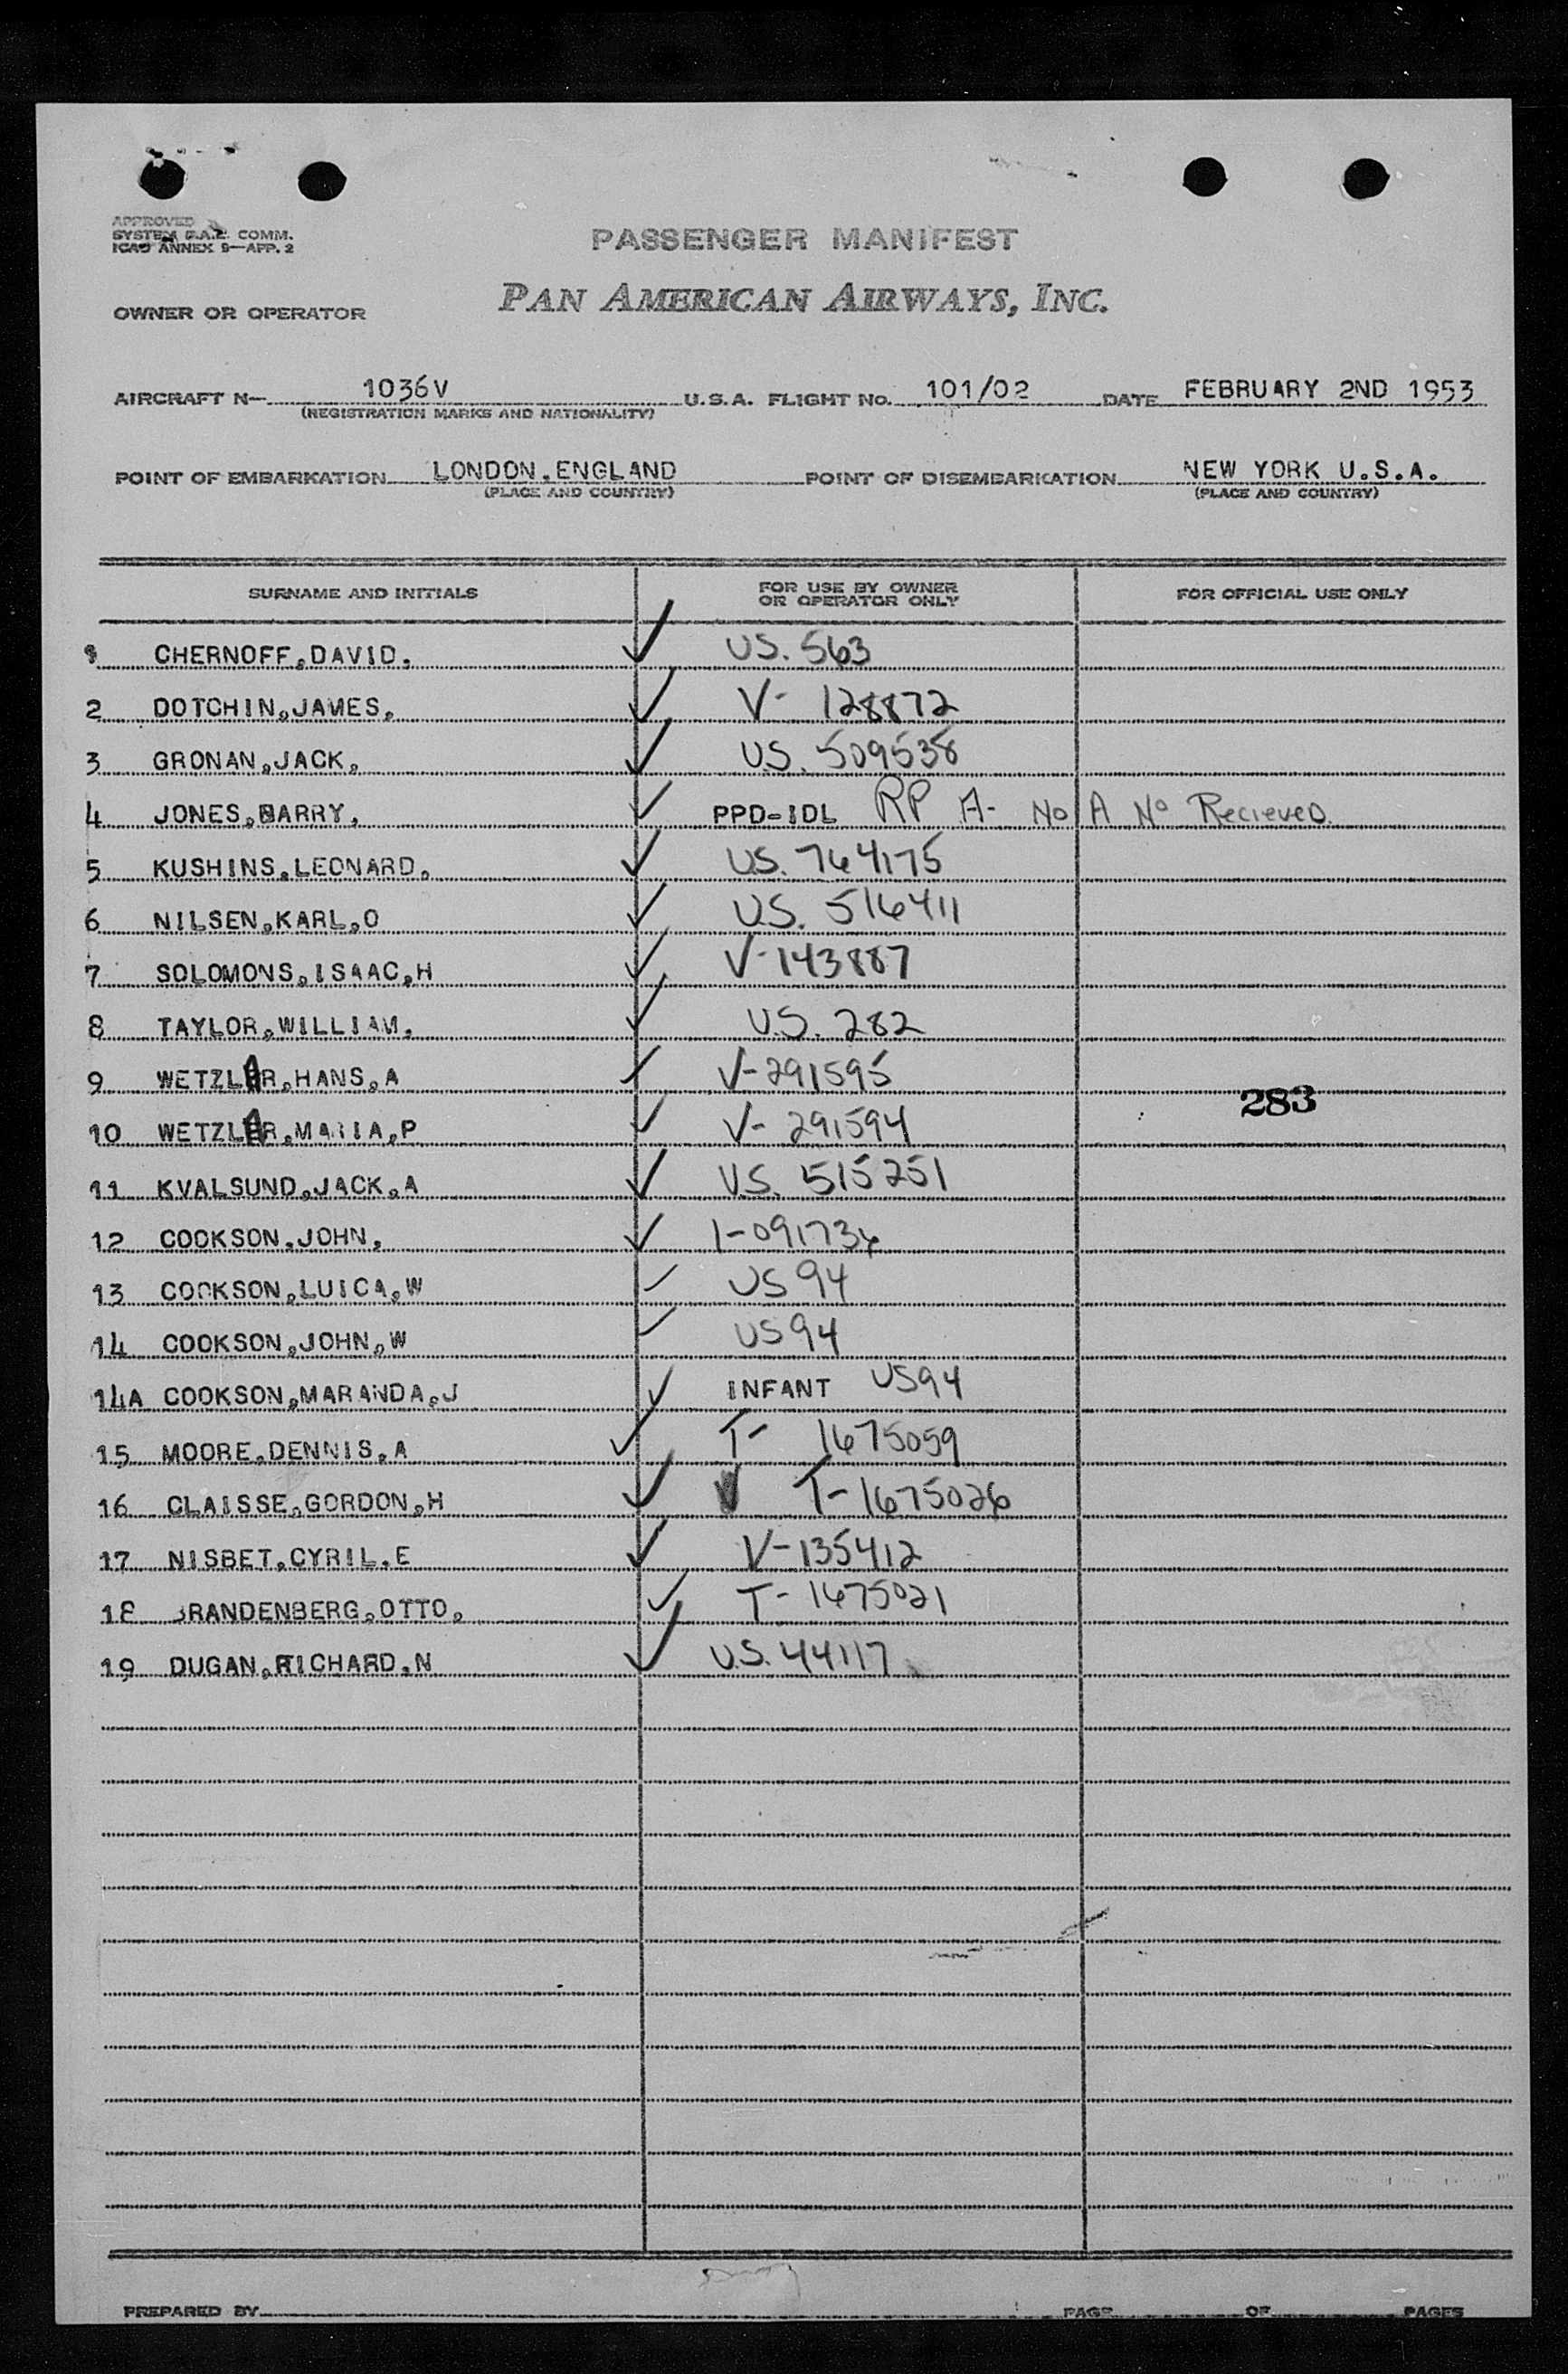 APPROVED
SYSTEM P.A.E. COMM.
ICAO ANNEX 9—APP. 2
PASSENGER MANIFEST
OWNER OR OPERATOR PAN AMERICAN AIRWAYS, INC.
AIRCRAFT N— 1036V U.S.A. FLIGHT No. 101/02 DATE FEBRUARY 2ND 1953
(REGISTRATION MARKS AND NATIONALITY)
POINT OF EMBARKATION LONDON.ENGLAND POINT OF DISEMBARKATION NEW YORK U.S.A.
(PLACE AND COUNTRY) (PLACE AND COUNTRY)
SURNAME AND INITIALS FOR USE BY OWNER OR OPERATOR ONLY FOR OFFICIAL USE ONLY
1 CHERNOFF,DAVID. ✓ US. 563
2 DOTCHIN,JAMES, ✓ V- 128872
3 GRONAN,JACK, ✓ U.S. 509538
4 JONES,BARRY, ✓ PPD-IDL RP A- No A No Recieved.
5 KUSHINS,LEONARD, ✓ US. 764175
6 NILSEN,KARL,O ✓ U.S. 516411
7 SOLOMONS,ISAAC,H ✓ V-143887
8 TAYLOR,WILLIAM. ✓ U.S. 282
9 WETZLAR,HANS,A ✓ V-291595
283
10 WETZLAR,MARIA,P ✓ V- 291594
11 KVALSUND,JACK,A ✓ U.S. 515251
12 COOKSON,JOHN, ✓ 1-091736
13 COOKSON,LUICA,W ✓ US 94
14 COOKSON,JOHN,W ✓ US 94
14A COOKSON,MARANDA,J ✓ INFANT US94
15 MOORE,DENNIS,A ✓ T- 1675059
16 CLAISSE,GORDON,H ✓ T-1675026
17 NISBET,CYRIL,E ✓ V-135412
18 BRANDENBERG,OTTO, ✓ T-1675021
19 DUGAN,RICHARD,N ✓ U.S. 44117
PREPARED BY PAGE OF PAGES